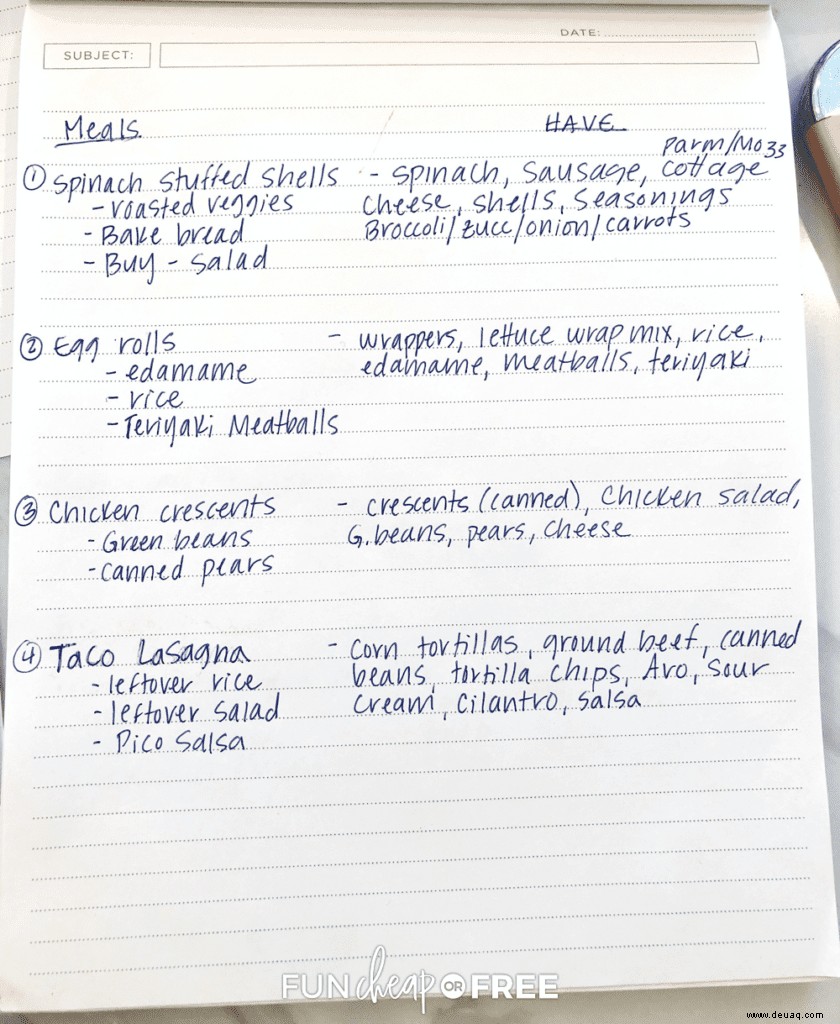 DATE:
SUBJECT:
Meals.
HAVE
Parm/Mozz
① Spinach stuffed shells - spinach, sausage, cottage
- roasted veggies cheese, shells, seasonings
- Bake bread Broccoli/zucc/onion/carrots
- Buy - salad
② Egg rolls - wrappers, lettuce wrap mix, rice,
- edamame edamame, meatballs, teriyaki
- rice
- Teriyaki Meatballs
③ Chicken crescents - crescents (canned), chicken salad,
- Green beans G.beans, pears, cheese
- canned pears
④ Taco Lasagna - corn tortillas, ground beef, canned
- leftover rice beans, tortilla chips, Avo, sour
- leftover salad cream, cilantro, salsa
- Pico Salsa
FUN cheap OR FREE
www.deuaq.com